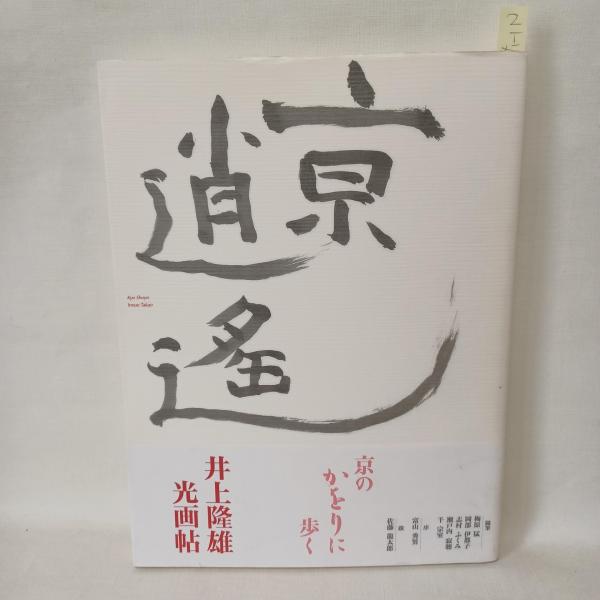 京
逍遙
Kyo Shoyo
Inoue Takao
京の
かをりに
歩く
井上隆雄
光画帖
随筆
梅原 猛
岡部 伊都子
志村 ふくみ
瀬戸内 寂聴
千 宗室
序
富山 秀男
跋
佐藤 龍太郎